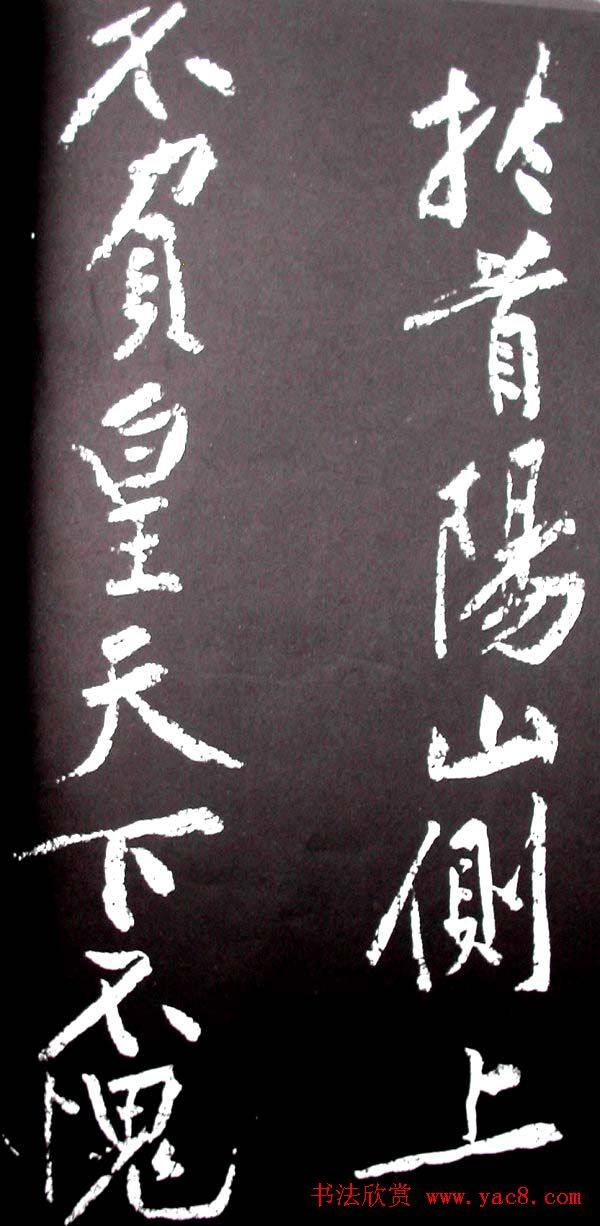 於首陽山側上
不負皇天下不愧
书法欣赏 www.yac8.com